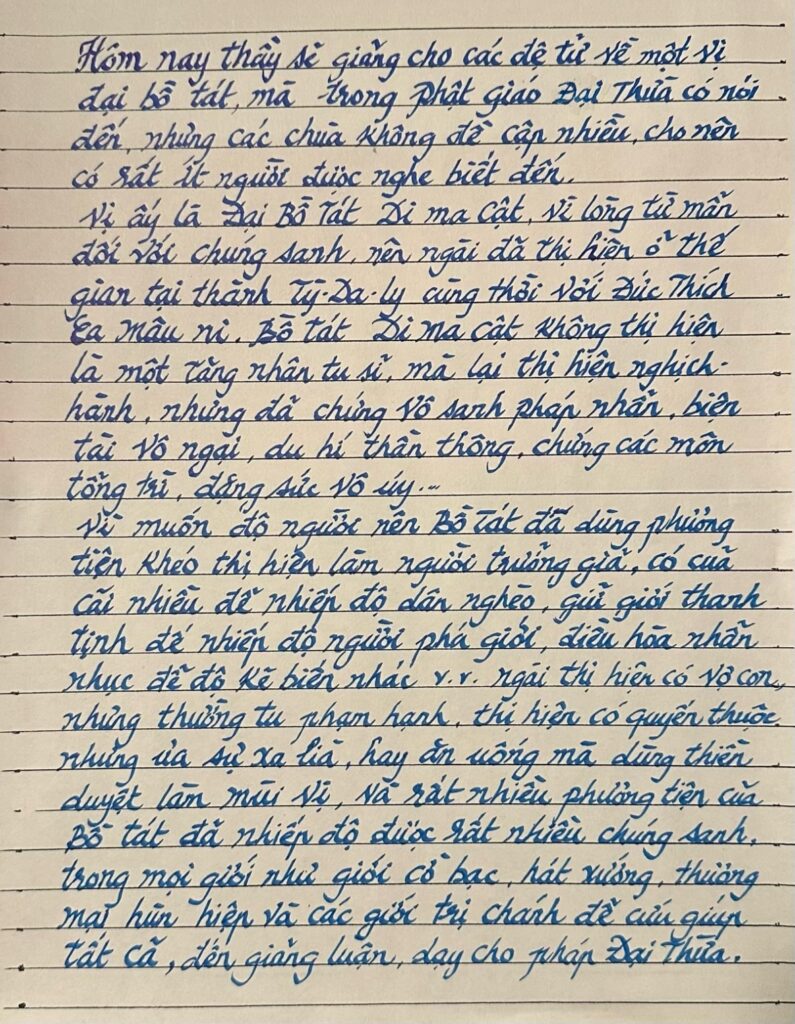 Hôm nay thầy sẽ giảng cho các đệ tử về một vị
đại bồ tát, mà trong Phật giáo Đại Thừa có nói
đến, nhưng các chùa không đề cập nhiều, cho nên
có rất ít người được nghe biết đến.
Vị ấy là Đại Bồ Tát Di ma Cật, vì lòng từ mẫn
đối với chúng sanh, nên ngài đã thị hiện ở thế
gian tại thành Tỳ-Da-ly cùng thời với Đức Thích
Ca Mâu ni. Bồ Tát Di ma Cật không thị hiện
là một tăng nhân tu sĩ, mà lại thị hiện nghịch-
hành, nhưng đã chứng Vô sanh pháp nhẫn, biện
tài vô ngại, du hí thần thông, chứng các môn
tổng trì, đặng sức vô úy...
Vì muốn độ người nên Bồ Tát đã dùng phương
tiện khéo thị hiện làm người trưởng giả, có của
cải nhiều để nhiếp độ dân nghèo, giữ giới thanh
tịnh để nhiếp độ người phá giới, điều hòa nhẫn
nhục để độ kẽ biến nhác v.v. ngài thị hiện có vợ con,
nhưng thường tu phạm hạnh, thị hiện có quyến thuộc
nhưng ưa sự xa lìa, hay ăn uống mà dùng thiền
duyệt làm mùi vị, và rất nhiều phương tiện của
Bồ tát đã nhiếp độ được rất nhiều chúng sanh,
trong mọi giới như giới cờ bạc, hát xướng, thương
mại hùn hiệp và các giới trị chánh để cứu giúp
tất cả, đến giảng luận, dạy cho pháp Đại Thừa.